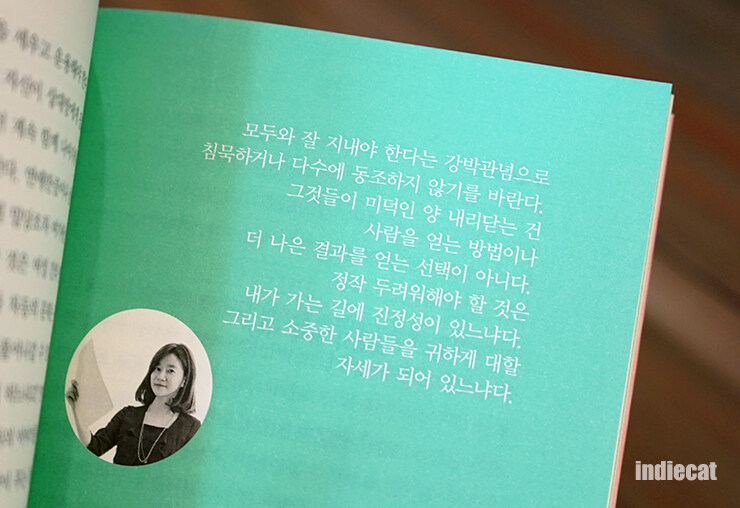 모두와 잘 지내야 한다는 강박관념으로
침묵하거나 다수에 동조하지 않기를 바란다.
그것들이 미덕인 양 내리닫는 건
사람을 얻는 방법이나
더 나은 결과를 얻는 선택이 아니다.
정작 두려워해야 할 것은
내가 가는 길에 진정성이 있느냐다.
그리고 소중한 사람들을 귀하게 대할
자세가 되어 있느냐다.
indiecat